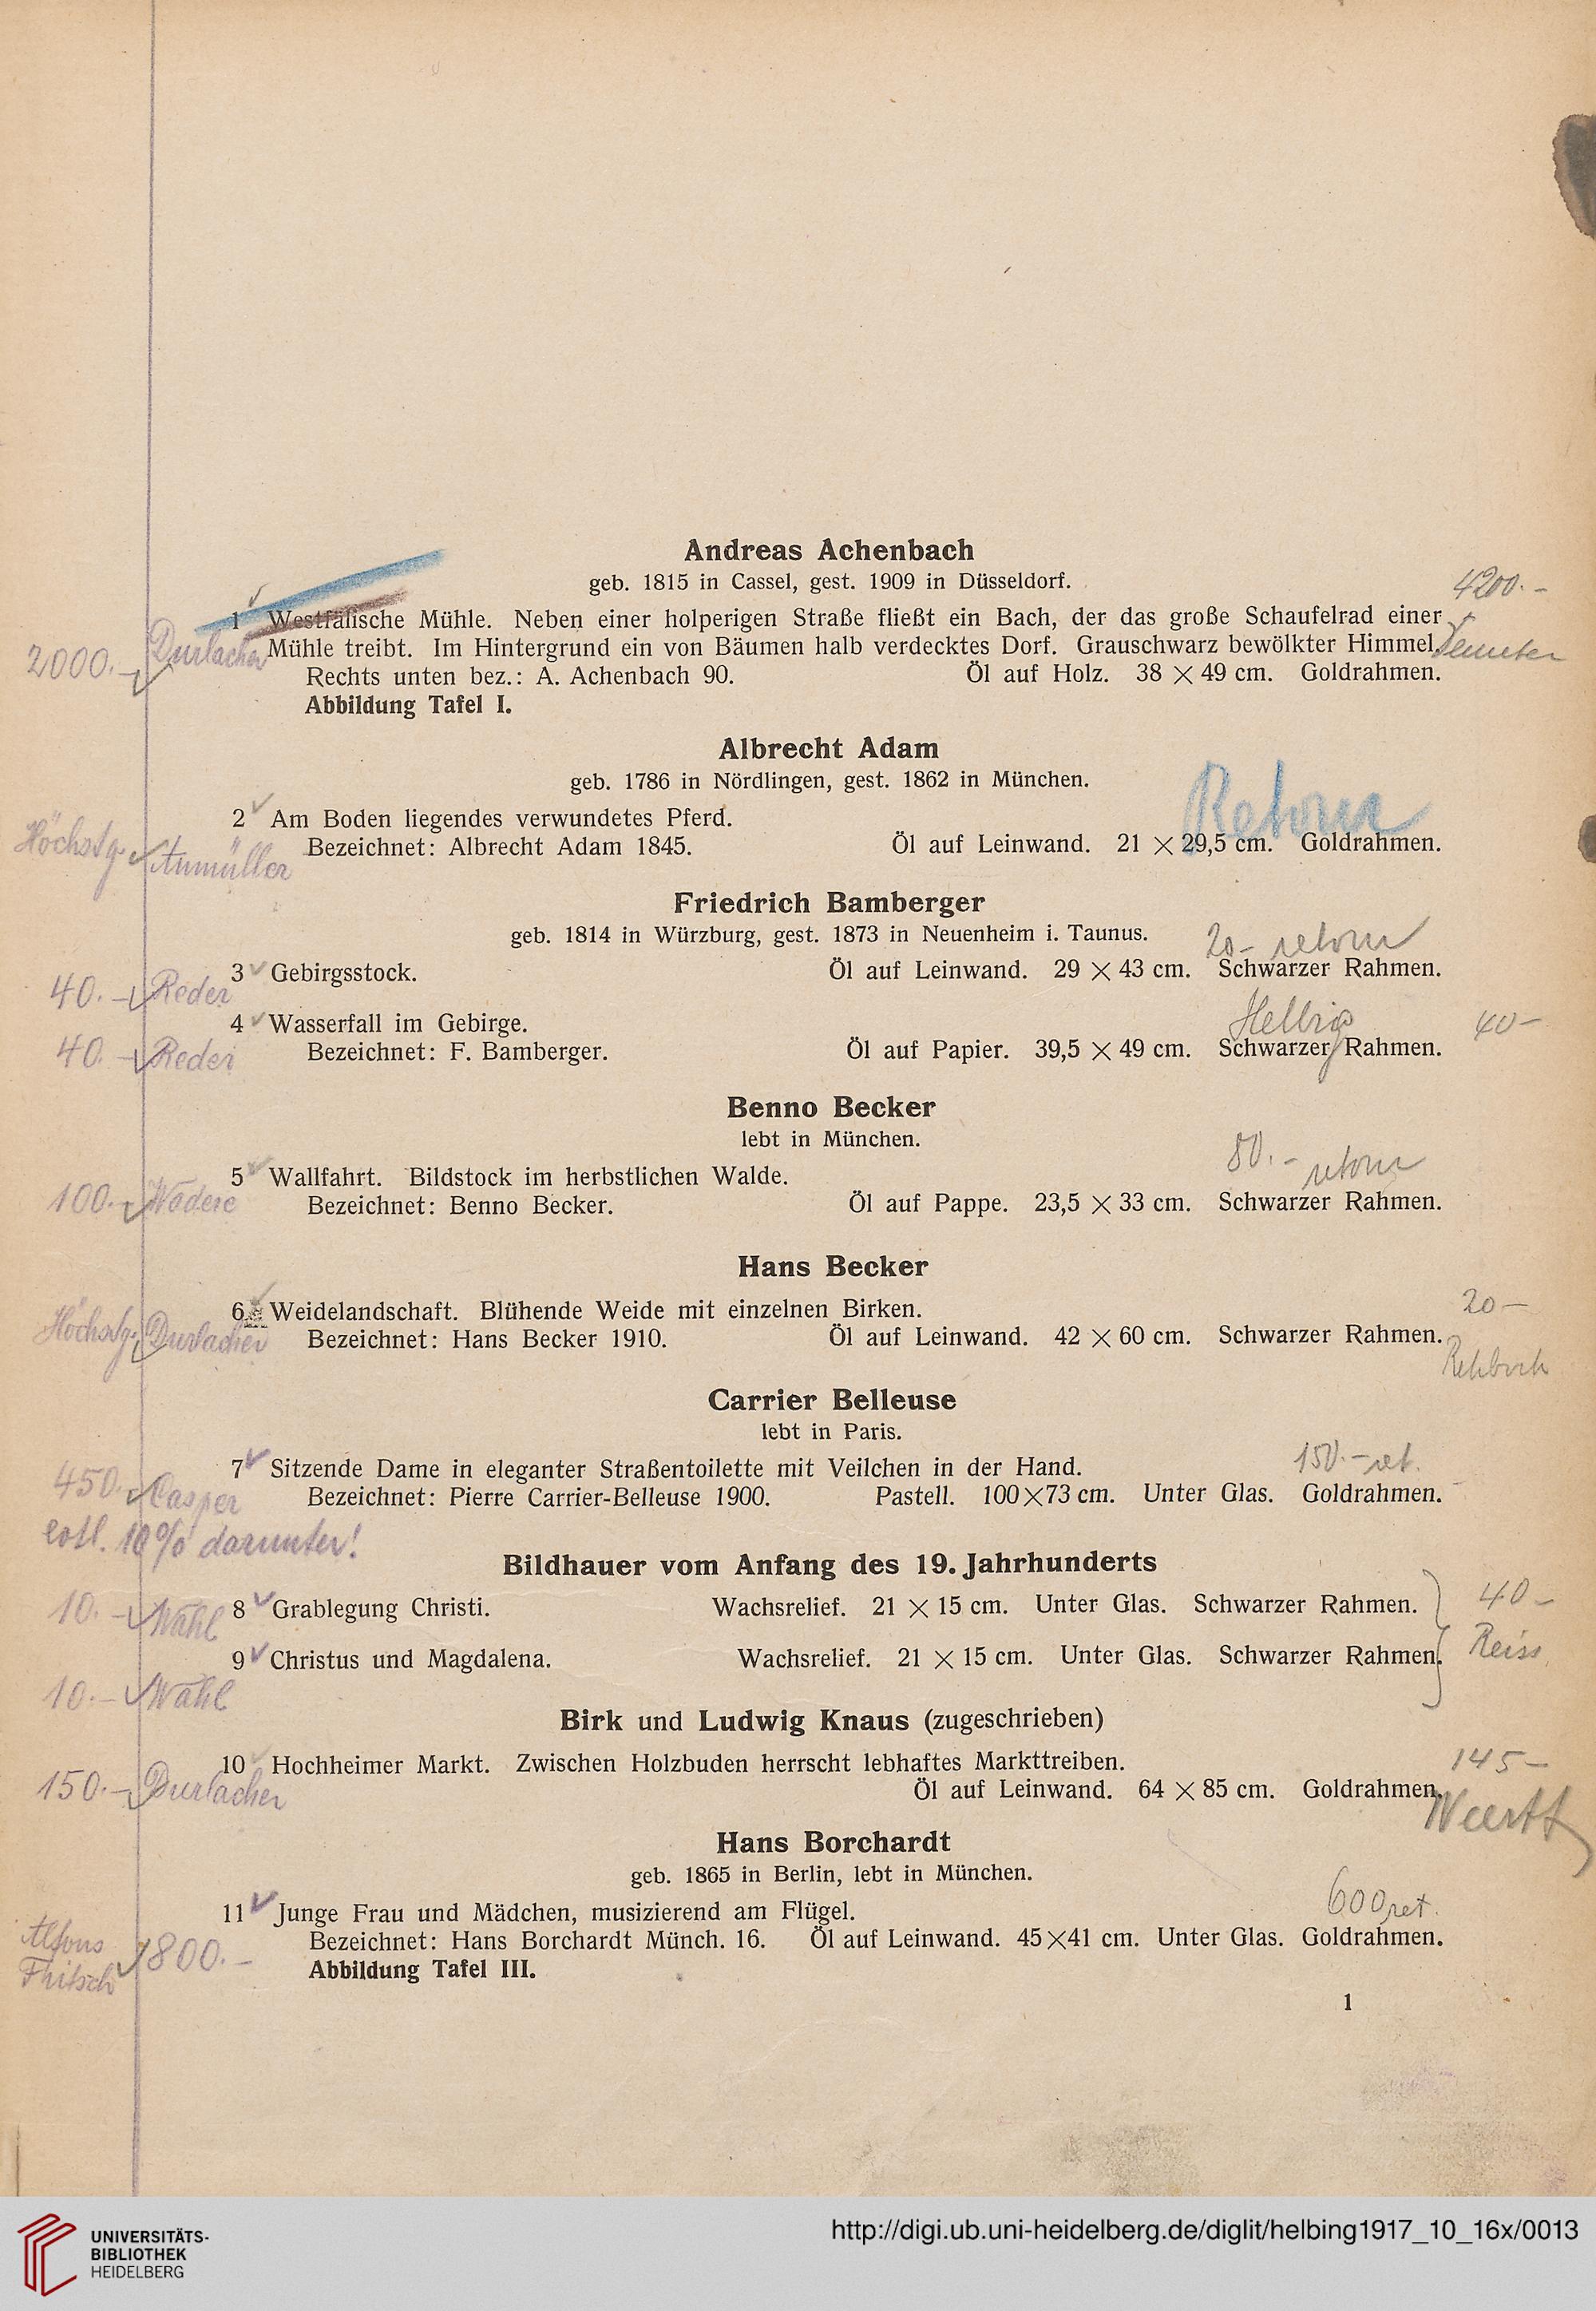 Andreas Achenbach
geb. 1815 in Cassel, gest. 1909 in Düsseldorf.
4200.-
1 Westfälische Mühle. Neben einer holperigen Straße fließt ein Bach, der das große Schaufelrad einer
Durlacher Mühle treibt. Im Hintergrund ein von Bäumen halb verdecktes Dorf. Grauschwarz bewölkter Himmel.
2000.-
Rechts unten bez.: A. Achenbach 90. Öl auf Holz. 38 × 49 cm. Goldrahmen.
Abbildung Tafel I.
Albrecht Adam
geb. 1786 in Nördlingen, gest. 1862 in München.
Retour
2 Am Boden liegendes verwundetes Pferd.
Höchstg. Anmüller
Bezeichnet: Albrecht Adam 1845. Öl auf Leinwand. 21 × 29,5 cm. Goldrahmen.
Friedrich Bamberger
geb. 1814 in Würzburg, gest. 1873 in Neuenheim i. Taunus.
20- retour
3 Gebirgsstock. Öl auf Leinwand. 29 × 43 cm. Schwarzer Rahmen.
40.- Reder
4 Wasserfall im Gebirge.
Helbig 40-
40.- Reder
Bezeichnet: F. Bamberger. Öl auf Papier. 39,5 × 49 cm. Schwarzer Rahmen.
Benno Becker
lebt in München.
80.- retour
5 Wallfahrt. Bildstock im herbstlichen Walde.
100.-
Bezeichnet: Benno Becker. Öl auf Pappe. 23,5 × 33 cm. Schwarzer Rahmen.
Hans Becker
20-
6 Weidelandschaft. Blühende Weide mit einzelnen Birken.
Höchstg. Durlacher
Bezeichnet: Hans Becker 1910. Öl auf Leinwand. 42 × 60 cm. Schwarzer Rahmen.
Carrier Belleuse
lebt in Paris.
150.- ret.
7 Sitzende Dame in eleganter Straßentoilette mit Veilchen in der Hand.
450.- Casper
Bezeichnet: Pierre Carrier-Belleuse 1900. Pastell. 100×73 cm. Unter Glas. Goldrahmen.
10% darunter!
Bildhauer vom Anfang des 19. Jahrhunderts
10.- Wahl
8 Grablegung Christi. Wachsrelief. 21 × 15 cm. Unter Glas. Schwarzer Rahmen.
40-
Reiss
9 Christus und Magdalena. Wachsrelief. 21 × 15 cm. Unter Glas. Schwarzer Rahmen.
10.- Wahl
Birk und Ludwig Knaus (zugeschrieben)
10 Hochheimer Markt. Zwischen Holzbuden herrscht lebhaftes Markttreiben.
145-
150.- Durlacher
Öl auf Leinwand. 64 × 85 cm. Goldrahmen.
Hans Borchardt
geb. 1865 in Berlin, lebt in München.
600 ret.
11 Junge Frau und Mädchen, musizierend am Flügel.
Alfons
Bezeichnet: Hans Borchardt Münch. 16. Öl auf Leinwand. 45×41 cm. Unter Glas. Goldrahmen.
Fritsch 800.-
Abbildung Tafel III.
1
UNIVERSITÄTS-
BIBLIOTHEK
HEIDELBERG
http://digi.ub.uni-heidelberg.de/diglit/helbing1917_10_16x/0013